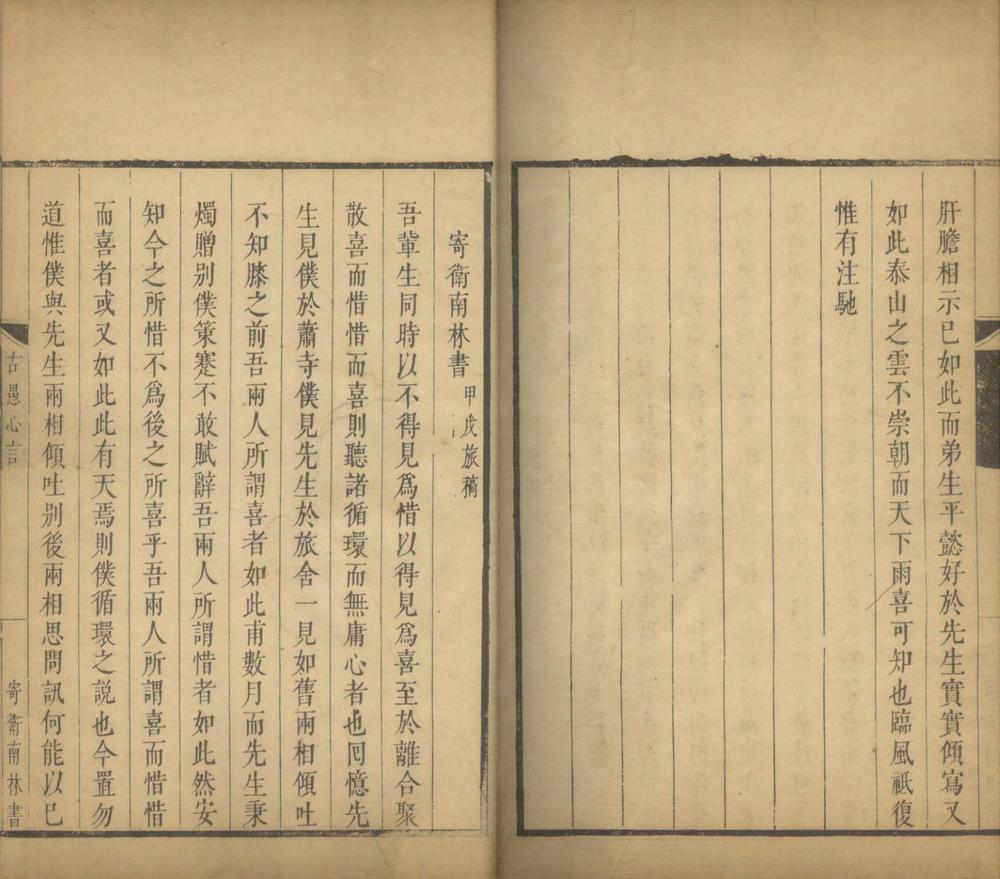 肝膽相示已如此而弟生平懿好於先生實實傾寫又
如此泰山之雲不崇朝而天下雨喜可知也臨風祇復
惟有注馳
寄衛南林書 甲戌旅稿
吾輩生同時以不得見爲惜以得見爲喜至於離合聚
散喜而惜惜而喜則聽諸循環而無庸心者也囘憶先
生見僕於蕭寺僕見先生於旅舍一見如舊兩相傾吐
不知膝之前吾兩人所謂喜者如此甫數月而先生秉
燭贈别僕策蹇不敢賦辭吾兩人所謂惜者如此然安
知今之所惜不爲後之所喜乎吾兩人所謂喜而惜惜
而喜者或又如此此有天焉則僕循環之説也今置勿
道惟僕與先生兩相傾吐别後兩相思問訊何能以已
古愚心言
寄衛南林書